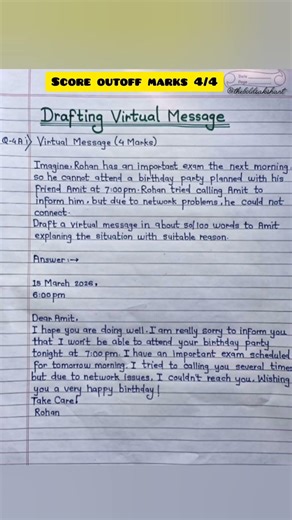 SCORE OUTOFF MARKS 4/4
@thelibleakshart
Drafting Virtual Message
Q-4A:) Virtual Message (4 Marks)
Imagine, Rohan has an important exam the next morning,
so he cannot attend a birthday party planned with his
friend Amit at 7:00pm. Rohan tried calling Amit to
inform him, but due to network problems, he could not
connect.
Draft a virtual message in about 50/100 words to Amit
explaning the situation with suitable reason.
Answer:→
15 March 2026,
6:00pm
Dear Amit,
I hope you are doing well. I am really sorry to inform you
that I won't be able to attend your birthday party
tonight at 7:00pm. I have an important exam scheduled
for tomorrow morning. I tried to calling you several times
but due to network issues, I couldn't reach you. Wishing
you a very happy birthday!
Take Care!
Rohan